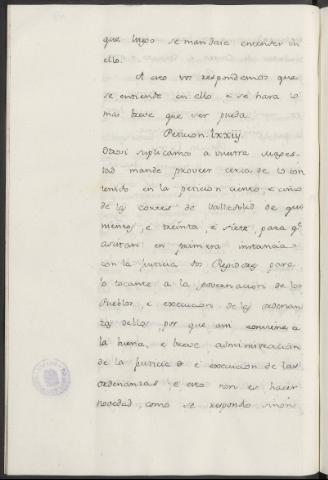 que luego se mandase entender en
ello.
A esto vos respondemos que
se entiende en ello e se hara lo
mas breve que ser pueda.
Peticion. lxxiij
Otrosi suplicamos a vuestra mages-
tad mande proveer cerca de lo con-
tenido en la peticion ciento, e cinco
de las cortes de Valladolid de qui
nientos, e treinta, e siete, para qe.
asistan en primera instancia
con la Justicia dos Regidores para
lo tocante a la governacion de los
Pueblos, e execucion de las ordenan
zas dellos, por que ami conviene a
la buena, e breve administracion
de la Justicia e execucion de las
ordenanzas e esto non es hacer
novedad, como se respondo sinon